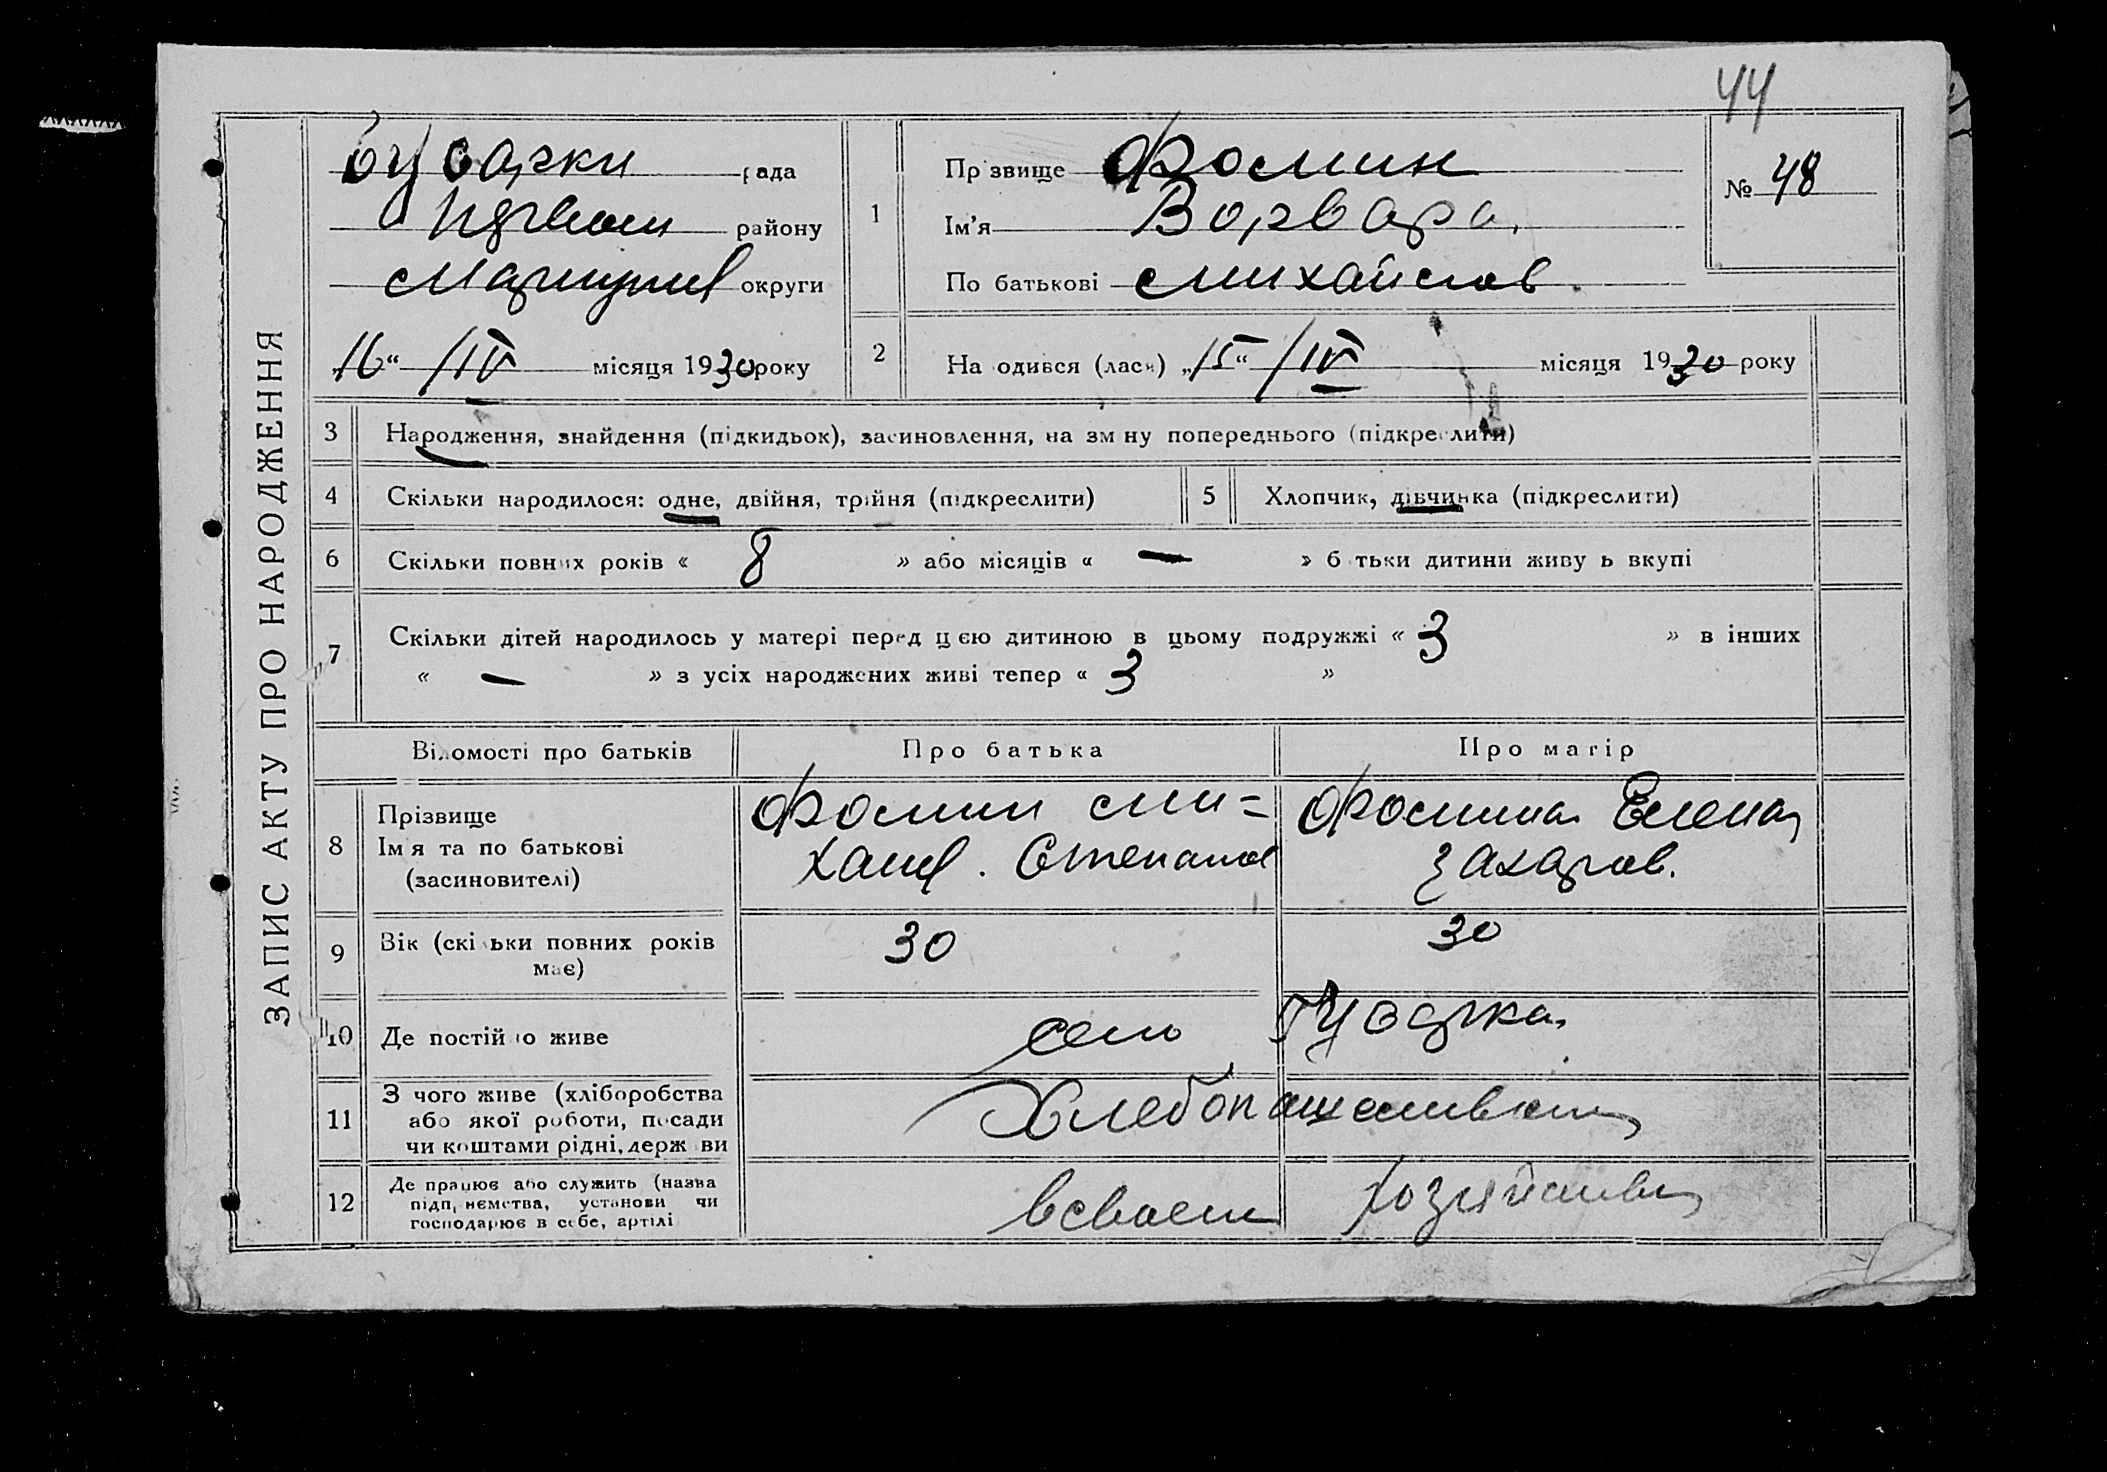 44
ЗАПИС АКТУ ПРО НАРОДЖЕННЯ
Гусарки рада
району
Мариупил округи
„16“ /IV місяця 1930 року
1
Прізвище Фомин
Ім’я Варвара
По батькові Михайлов.
№ 48
2
Народився (лася) „15“ /IV місяця 1930 року
3 Народження, знайдення (підкидьок), засиновлення, на зміну попереднього (підкреслити)
4 Скільки народилося: одне, двійня, трійня (підкреслити)
5 Хлопчик, дівчинка (підкреслити)
6 Скільки повних років « 8 » або місяців « — » батьки дитини живуть вкупі
7 Скільки дітей народилось у матері перед цією дитиною в цьому подружжі « 3 » в інших
« — » з усіх народжених живі тепер « 3 »
Відомості про батьків
Про батька
Про матір
8
Прізвище
Ім’я та по батькові
(засиновителі)
Фомин Ми=
хаил. Степанов
Фомина Елена
Захаров.
9
Вік (скільки повних років
має)
30
30
10 Де постійно живе
село Гусарка
11
З чого живе (хліборобства
або якої роботи, посади
чи коштами рідні, держави
Хлебопашеством
12
Де працює або служить (назва
підприємства, установи чи
господарює в себе, артілі
в своем хозяйстве